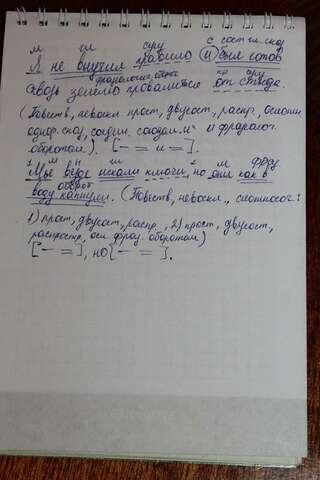 м гл сущ с сост. гл. сказ
Я не выучил правило и был готов
фразеологич. оборот пр. сущ
сквозь землю провалиться от стыда.
(Повеств, невоскл. прост, двусост, распр, осложн
однор. сказ, соедин. союзом „и" и фразеолог.
оборотом). [— = и =].
1 м н гл 2 м фраз
Мы везде искали ключи, но они как в
оборот
воду канули. (Повеств, невоскл., сложносоч:
1) прост, двусост, распр., 2) прост, двусост,
распростр, осл. фраз. оборотом)
[— =], но [— =].